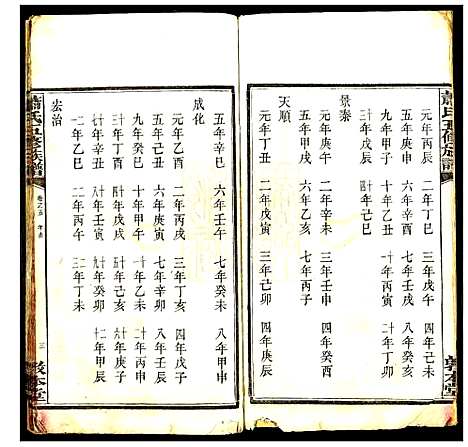 蕭氏五修族譜
敦本堂
元年丙辰 二年丁巳 三年戊午 四年己未
五年庚申 六年辛酉 七年壬戌 八年癸亥
九年甲子 十年乙丑 十一年丙寅 十二年丁卯
十三年戊辰 十四年己巳
景泰
元年庚午 二年辛未 三年壬申 四年癸酉
五年甲戌 六年乙亥 七年丙子
天順
元年丁丑 二年戊寅 三年己卯 四年庚辰
五年辛巳 六年壬午 七年癸未 八年甲申
成化
元年乙酉 二年丙戌 三年丁亥 四年戊子
五年己丑 六年庚寅 七年辛卯 八年壬辰
九年癸巳 十年甲午 十一年乙未 十二年丙申
十三年丁酉 十四年戊戌 十五年己亥 十六年庚子
十七年辛丑 十八年壬寅 十九年癸卯 二十年甲辰
二十一年乙巳 二十二年丙午 二十三年丁未
宏治
蕭氏五修族譜
三
敦本堂